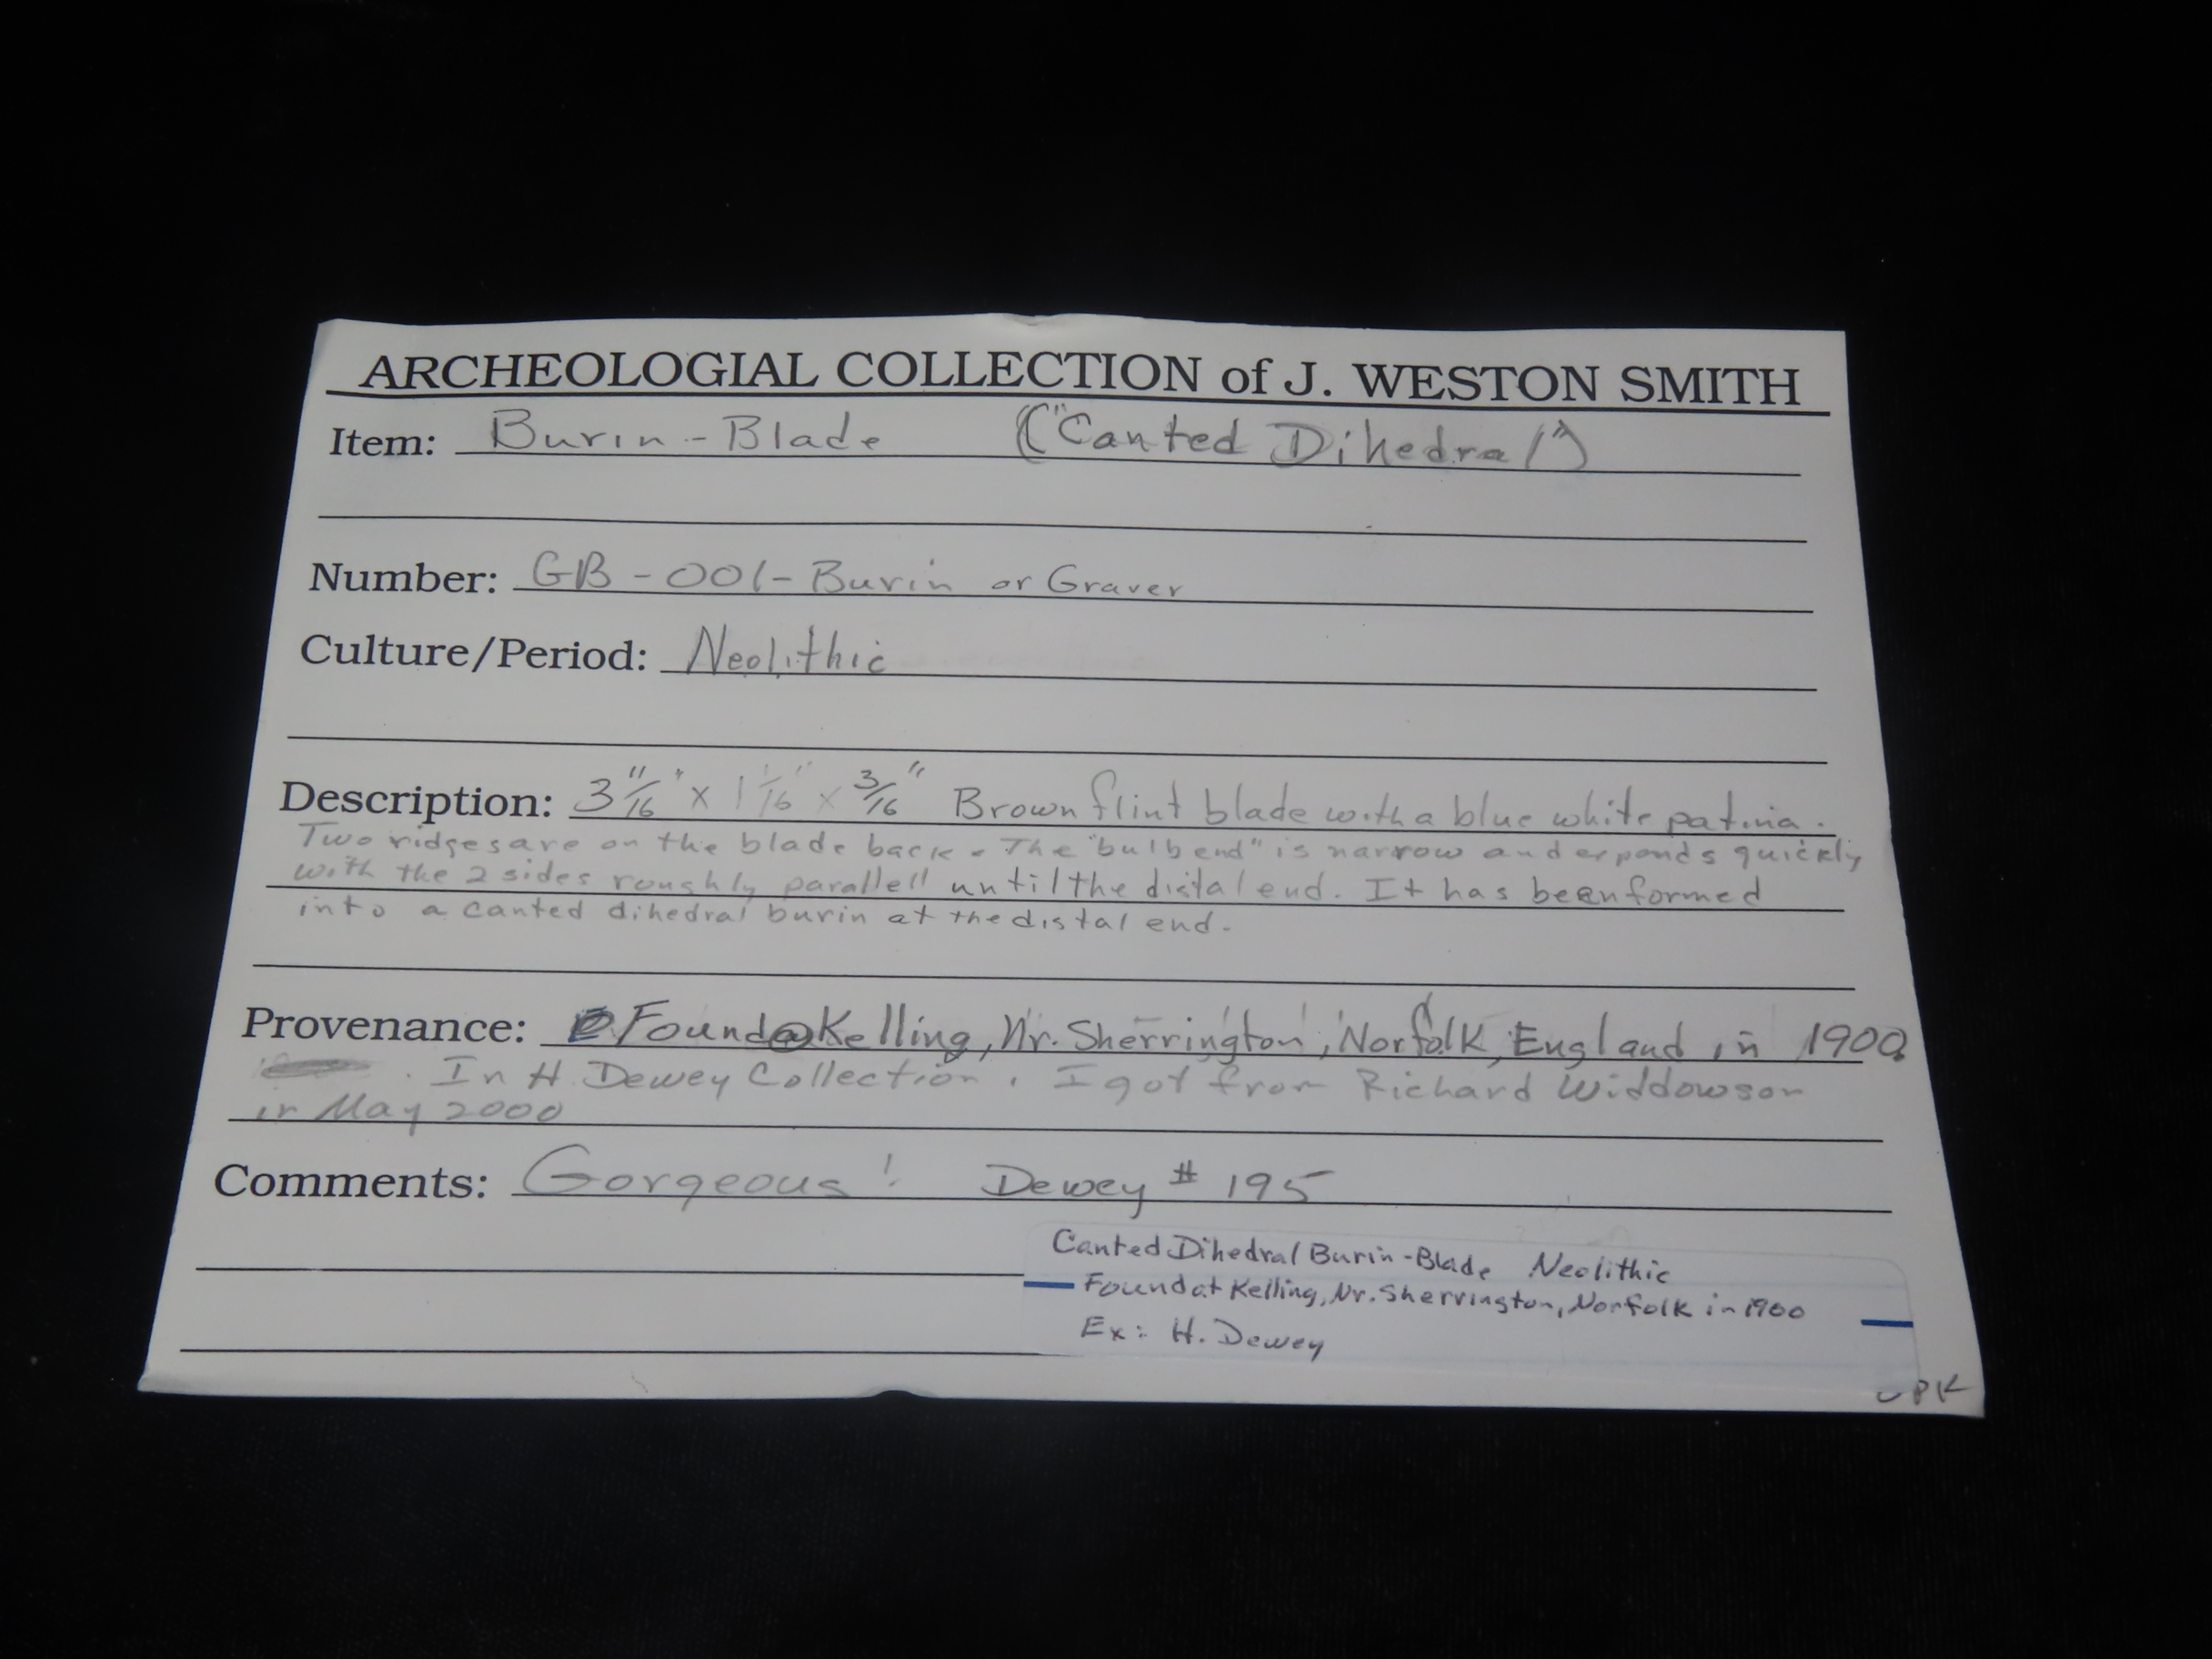 ARCHEOLOGIAL COLLECTION of J. WESTON SMITH
Item: Burin-Blade ("Canted Dihedral")
Number: GB-001-Burin or Graver
Culture/Period: Neolithic
Description: 3 11/16" x 1 1/16" x 3/16" Brown flint blade with a blue white patina.
Two ridges are on the blade back. The "bulb end" is narrow and expands quickly
with the 2 sides roughly parallell until the distal end. It has been formed
into a canted dihedral burin at the distal end.
Provenance: Found @ Kelling, Nr. Sherrington, Norfolk, England in 1900.
. In H. Dewey Collection. I got from Richard Widdowson
in May 2000
Comments: Gorgeous! Dewey # 195
Canted Dihedral Burin-Blade Neolithic
Found at Kelling, Nr. Sherrington, Norfolk in 1900
Ex: H. Dewey